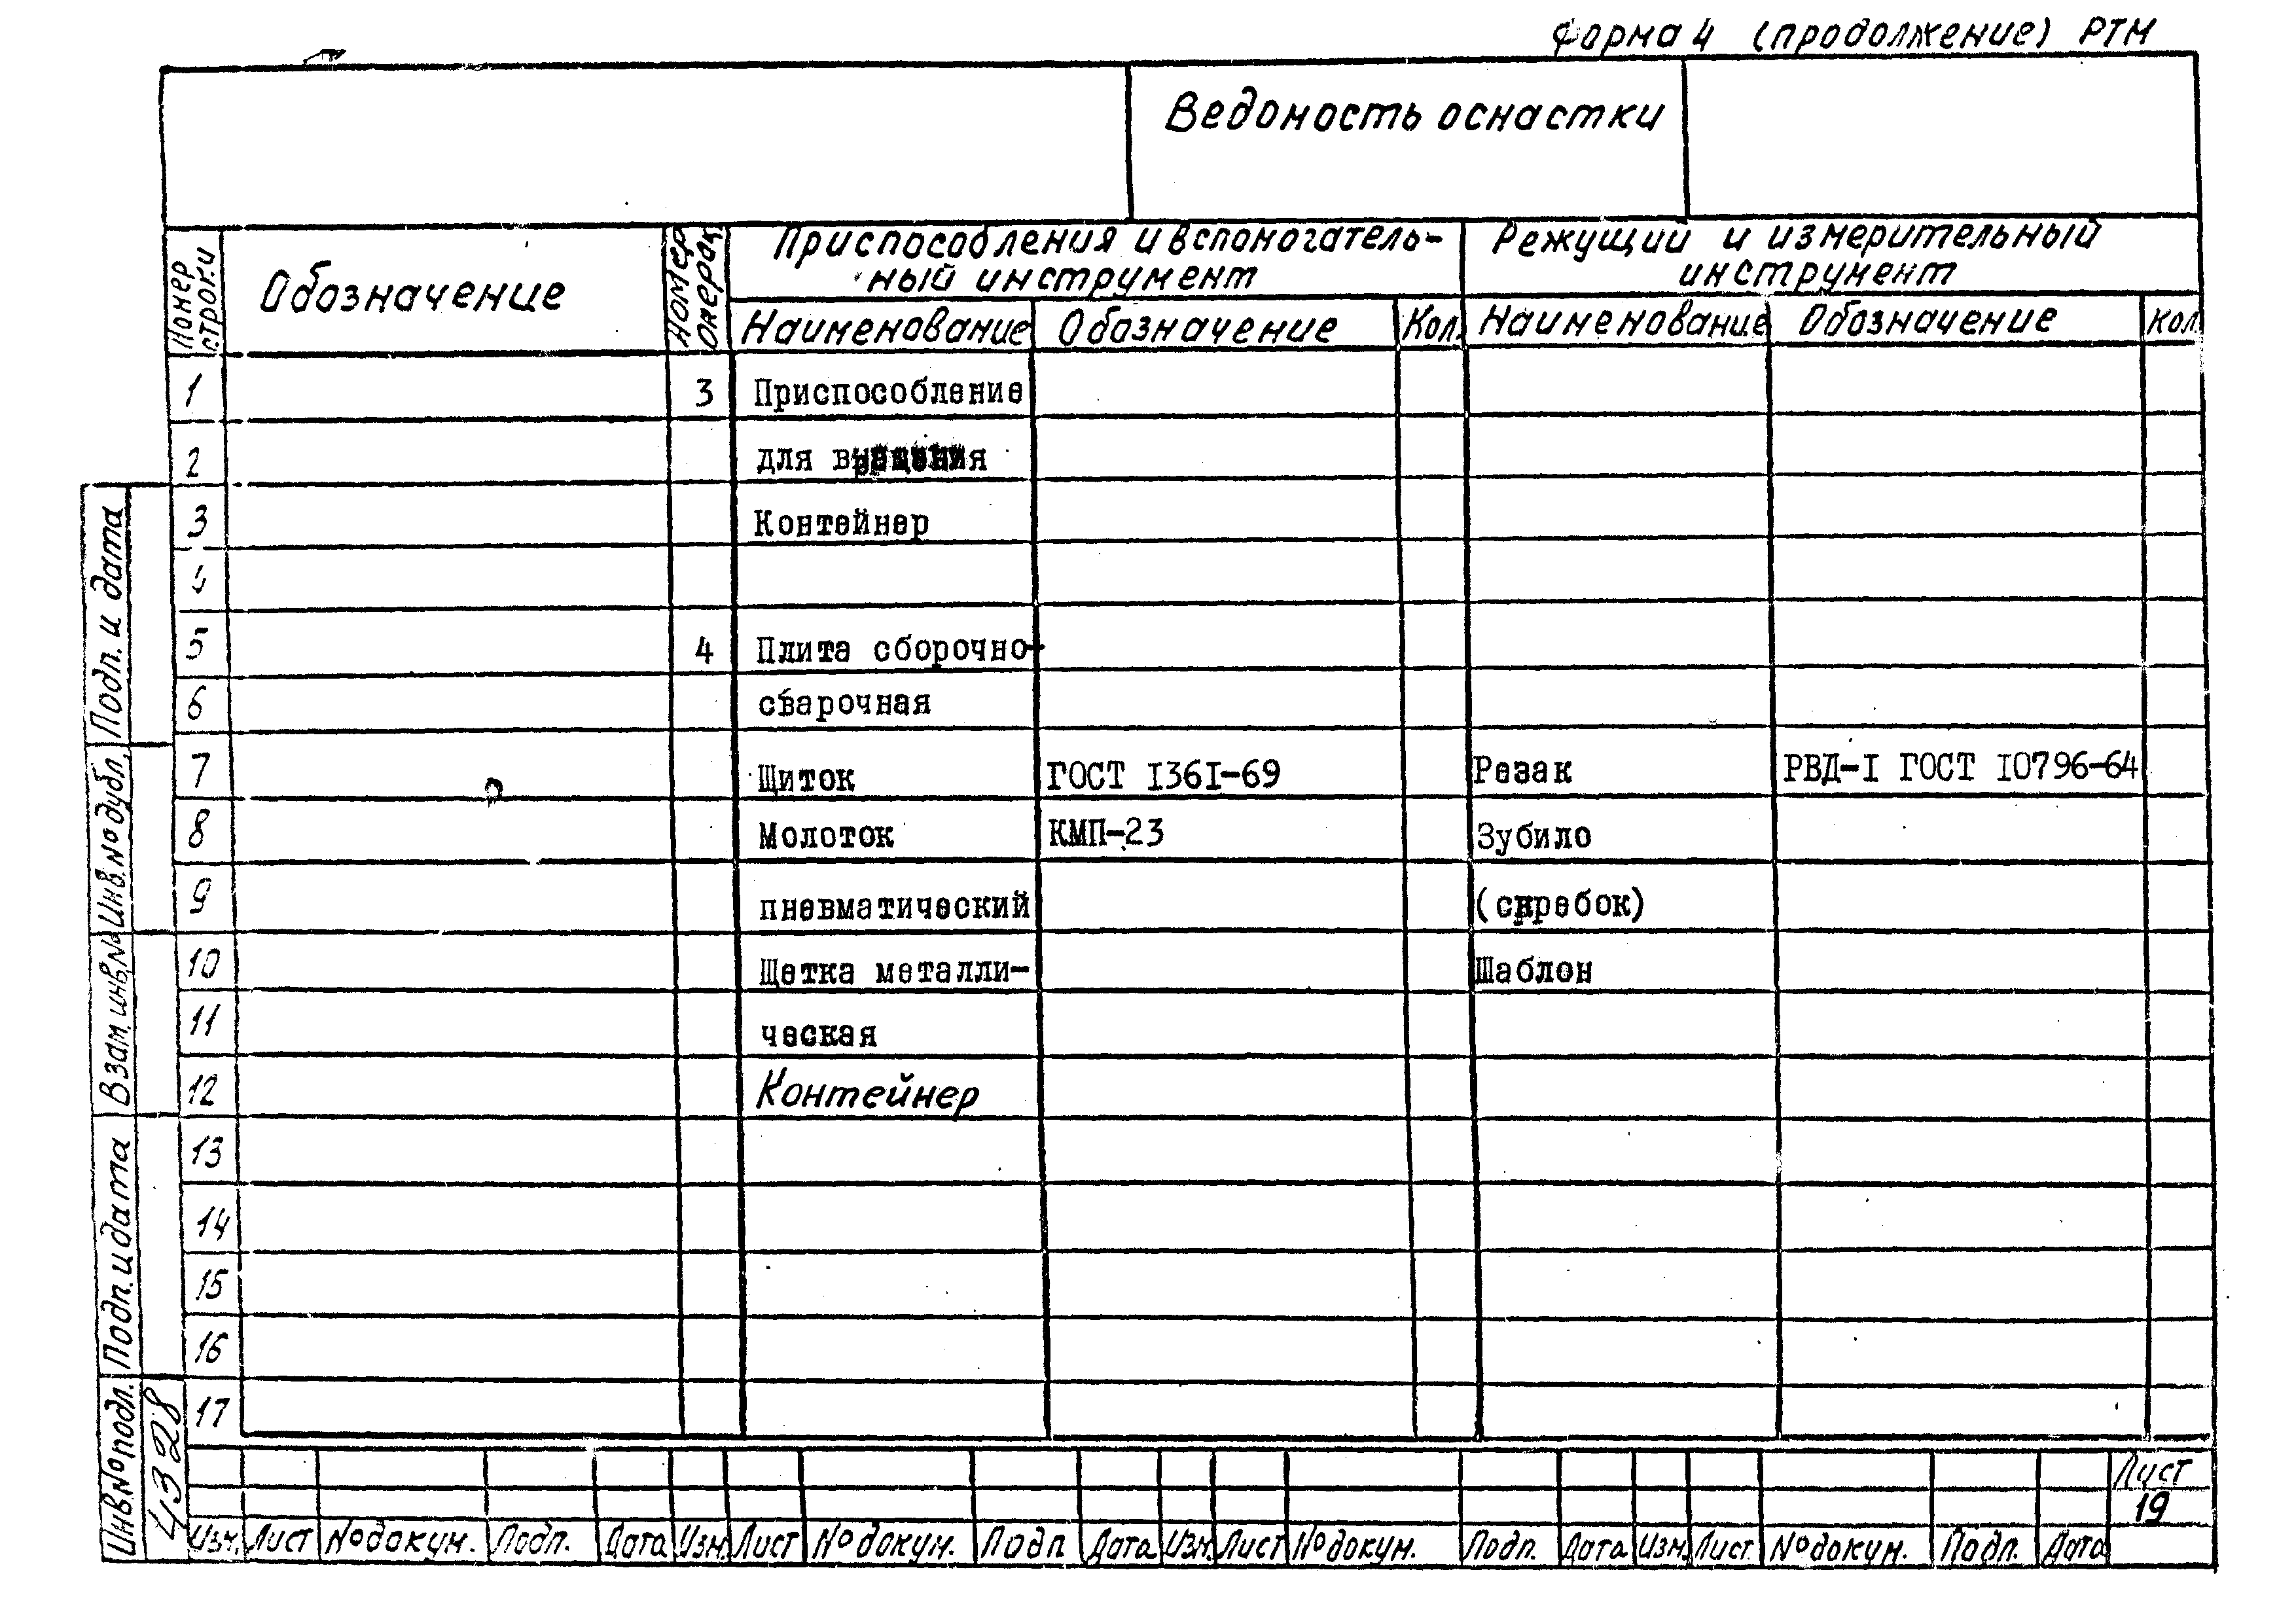 Форма 4 (продолжение) РТМ
Ведомость оснастки
Номер строки
Обозначение
Номер операц.
Приспособления и вспомогатель-
ный инструмент
Режущий и измерительный
инструмент
Наименование Обозначение Кол. Наименование Обозначение Кол.
1 3 Приспособление
2 для
3 Контейнер
4
5 4 Плита сборочно-
6 сварочная
7 Щиток ГОСТ 1361-69 Резак РВД-I ГОСТ 10796-64
8 Молоток КМП-23 Зубило
9 пневматический (скребок)
10 Щетка металли- Шаблон
11 ческая
12 Контейнер
13
14
15
16
17
Подп. и дата
Инв.№ дубл.
Взам.инв.№
Подп. и дата
Инв.№ подл.
4328
Лист
19
Изм. Лист № докум. Подп. Дата Изм. Лист № докум. Подп Дата Изм. Лист № докум. Подп. Дата Изм. Лист № докум. Подп. Дата